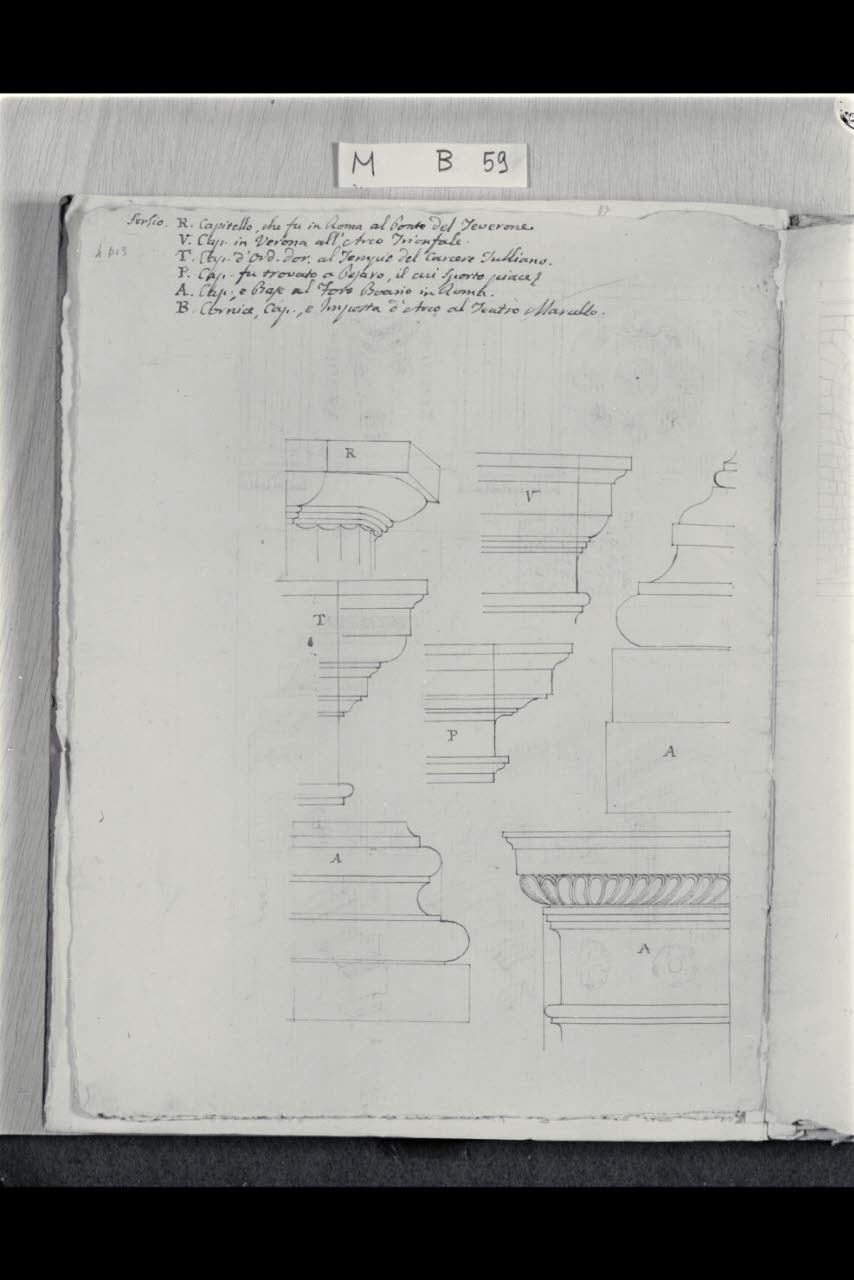 M B 59
Serlio. R. Capitello, che fu in Roma al Ponte del Teverone.
V. Cap. in Verona all'Arco Trionfale.
T. Cap. d'Ord. dor. al Tempio del Carcere Tulliano.
P. Cap. fu trovato a Pesaro, il cui sporto piace
A. Cap., e Base al Foro Boario in Roma.
B. Cornice, Cap., e Imposta d'Arco al Teatro Marcello.
R
V
T
P
A
A
A